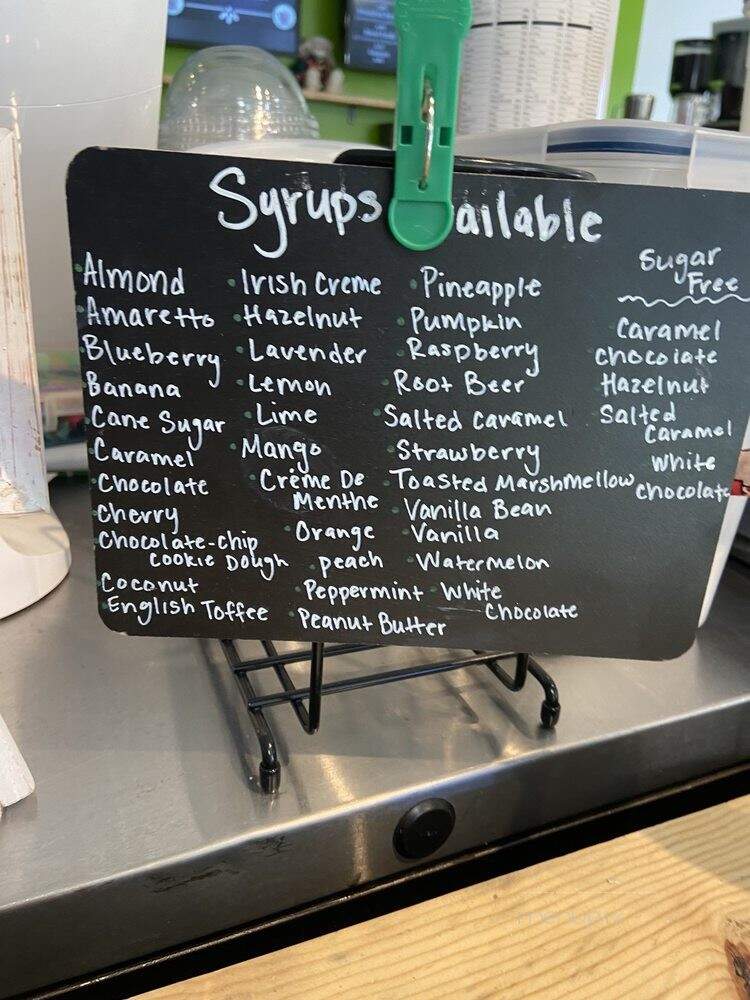 Syrups ailable
Almond
Amaretto
Blueberry
Banana
Cane Sugar
Caramel
Chocolate
Cherry
Chocolate-chip
Cookie Dough
Coconut
English Toffee
Irish Creme
Hazelnut
Lavender
Lemon
Lime
Mango
Crème De
Menthe
Orange
peach
Peppermint
Peanut Butter
Pineapple
Pumpkin
Raspberry
Root Beer
Salted Caramel
Strawberry
Toasted Marshmellow
Vanilla Bean
Vanilla
Watermelon
White
Chocolate
Sugar
Free
Caramel
chocolate
Hazelnut
Salted
Caramel
White
chocolate